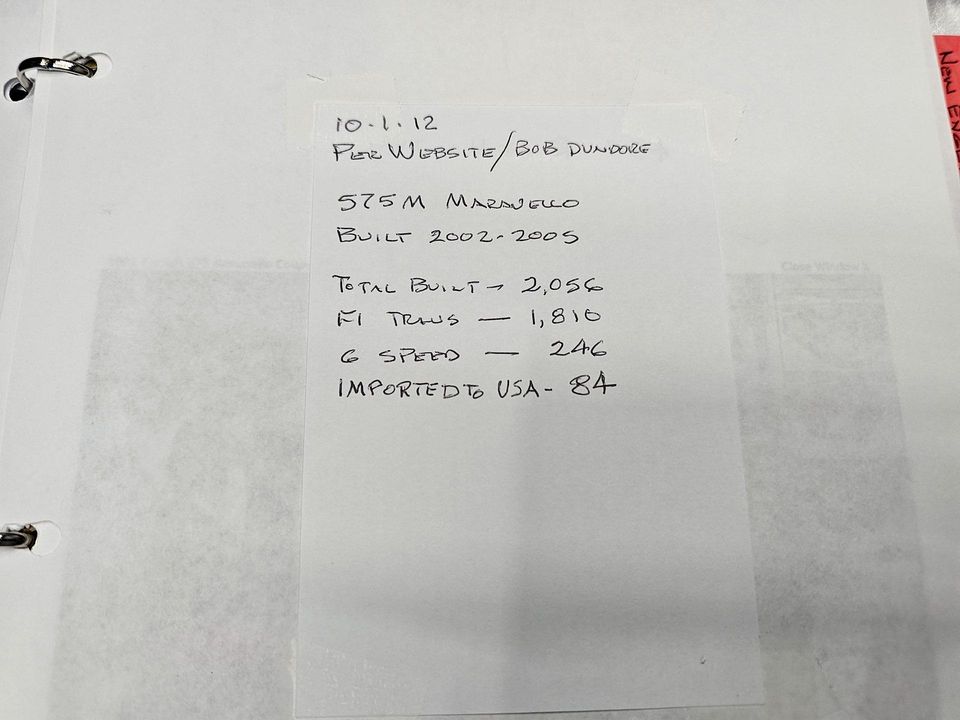 10.1.12
PER WEBSITE/BOB DUNDORE
575M MARANELLO
BUILT 2002-2005
TOTAL BUILT → 2,056
F1 TRANS — 1,810
6 SPEED — 246
IMPORTED TO USA - 84
Close Window
NEW